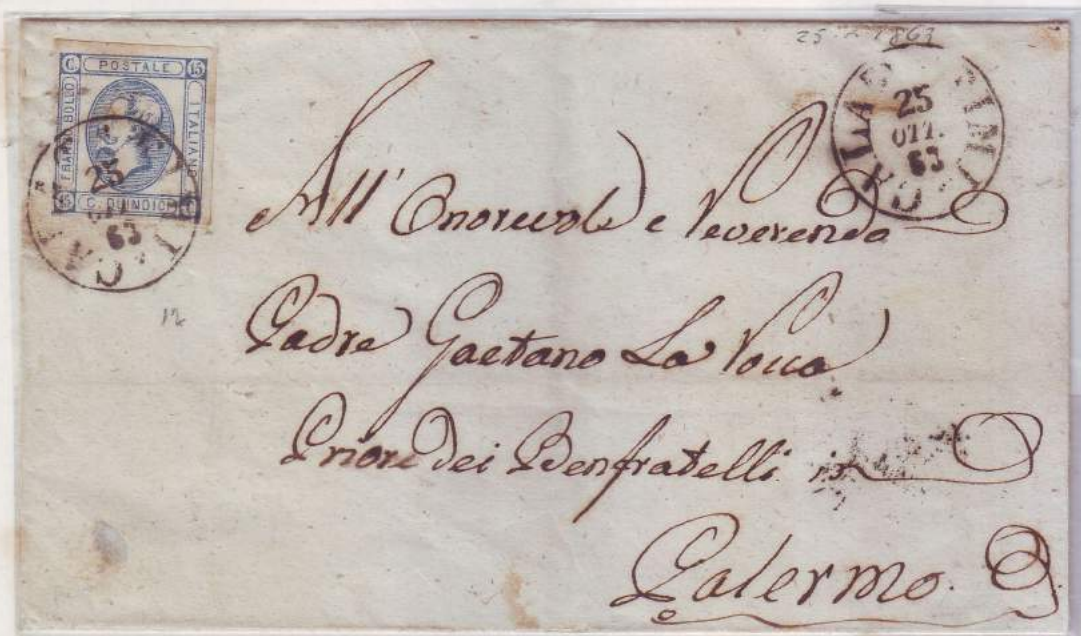 25 1863
C. POSTALE 15
FRANCO BOLLO
ITALIANO
15 C. QUINDICI
25
OTT.
63
25
OTT.
63
All' Onorevole e Reverendo
Padre Gaetano La Rocca
Priore dei Benfratelli in
Palermo
12